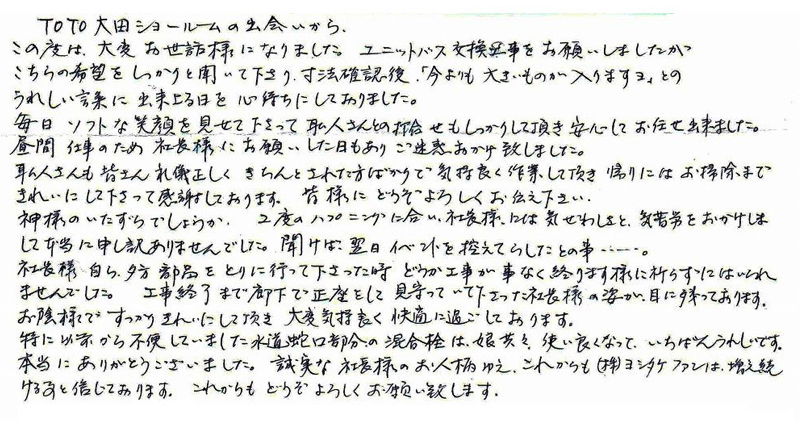 TOTO大田ショールームの出会いから、
この度は、大変お世話様になりました。ユニットバス交換工事をお願いしましたが
こちらの希望をしっかりと聞いて下さり、寸法確認後、「今よりも大きいものが入りますよ」との
うれしい言葉に出来上る日を心待ちにしておりました。
毎日ソフトな笑顔を見せて下さって職人さんとの打合せもしっかりして頂き安心してお任せ出来ました。
昼間仕事のため社長様にお願いした日もありご迷惑おかけ致しました。
職人さんも皆さん礼儀正しくきちんとされた方ばかりで気持良く作業して頂き帰りにはお掃除まで
きれいにして下さって感謝しております。皆様にどうぞよろしくお伝え下さい。
神様のいたずらでしょうか、2度のハプニングに合い、社長様には気ぜわしさと、気苦労をおかけしま
して本当に申し訳ありませんでした。聞けば、翌日イベントを控えてらしたとの事……。
社長様自ら、夕方部品をとりに行って下さった時どうか工事が事なく終ります様に祈らずにはいられ
ませんでした。工事終了まで廊下で正座をして見守っていて下さった社長様の姿が、目に残っております。
お陰様ですっかりきれいにして頂き大変気持良く快適に過ごしております。
特に以前から不便していました水道蛇口部分の混合栓は、娘共々、使い良くなって、いちばんうれしいです。
本当にありがとうございました。誠実な社長様のお人柄ゆえ、これからも(株)ヨシタケファンは、増え続
けると信じております。これからもどうぞよろしくお願い致します。